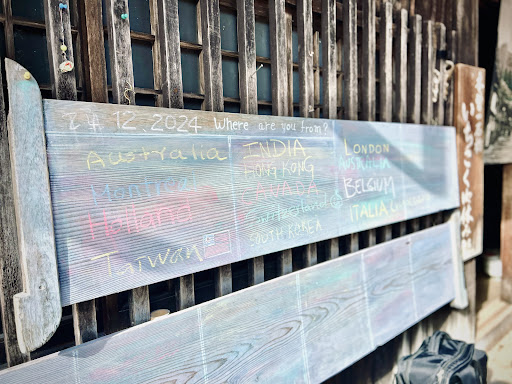 12, 2024 Where are you from?
Australia
Montreal
Holland
Taiwan
INDIA
HONG KONG
CANADA
Switzerland
SOUTH KOREA
LONDON
AUSTRALIA
BELGIUM
ITALIA